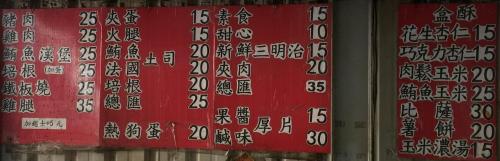 豬肉 25
雞肉 25
鮪魚漢堡 25
培根(加蛋) 25
鐵板燒 25
雞腿 35
加起士+5元
火蛋 15
火腿 15
鮪魚 20
土司
法國 20
培根 20
總匯 25
熱狗蛋 20
素食 15
甜心 10
新鮮三明治 15
夾肉 20
總匯 35
果醬 15
厚片
鹹味 30
盒酥
花生杏仁 15
巧克力杏仁 15
肉鬆玉米 20
鮪魚玉米 25
比薩 30
薯餅 20
玉米濃湯 15